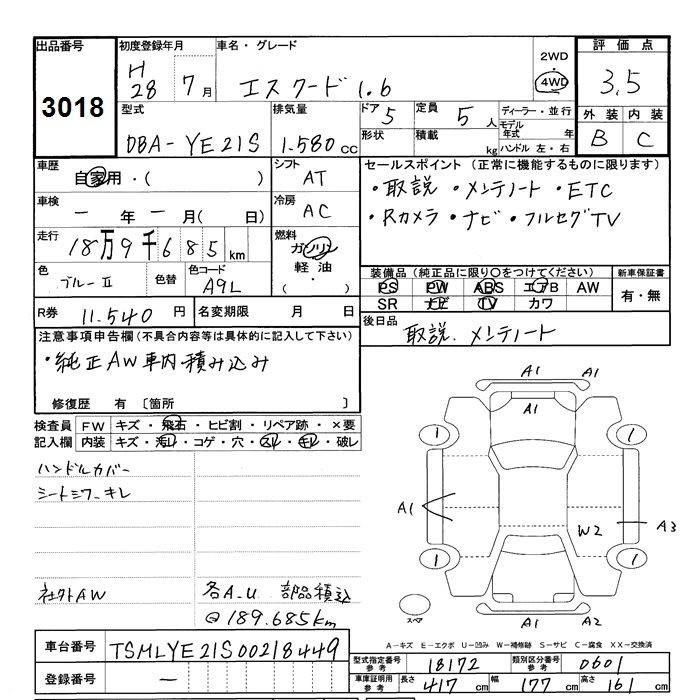 出品番号
3018
初度登録年月
H28 7月
車名・グレード
エスクード 1.6
2WD
・
4WD
評価点
3.5
外装 内装
B C
型式
DBA-YE21S
排気量
1.580 cc
ドア 5
定員 5 人
形状
積載 kg
ディーラー・並行
モデル年式 年
ハンドル 左・右
車歴
自家用・( )
シフト
AT
車検
ー 年 ー 月( 日)
冷房
AC
走行
18万9千685 km
燃料
ガソリン
軽油
・( )
色
ブルーⅡ
色替
色コード
A9L
R券 11.540 円
名変期限 月 日
セールスポイント (正常に機能するものに限ります)
・取説・メンテノート・ETC
・Rカメラ・ナビ・フルセグTV
装備品(純正品に限り○をつけてください)
PS PW ABS エアB AW
SR ナビ TV カワ
新車保証書
有・無
後日品
取説、メンテノート
注意事項申告欄(不具合内容等は具体的に記入して下さい)
・純正AW車内積み込み
修復歴 有 〔箇所 〕
検査員記入欄
FW キズ・飛石・ヒビ割・リペア跡・×要
内装 キズ・汚れ・コゲ・穴・スレ・キレ・破レ
ハンドルカバー
シートシワ・キレ
社外AW
各A.U 部品積込
@189.685km
A1 A1
A1
1 1
A1
W2 A3
1 1
A1
スペア
A1 A2
A-キズ E-エクボ U-凹み W-補修跡 S-サビ C-腐食 XX-交換済
車台番号 TSMLYE21S00218449
登録番号 ー
型式指定番号 参考 18172
類別区分番号 参考 0601
車庫証明用 参考 長さ 417 cm 幅 177 cm 高さ 161 cm